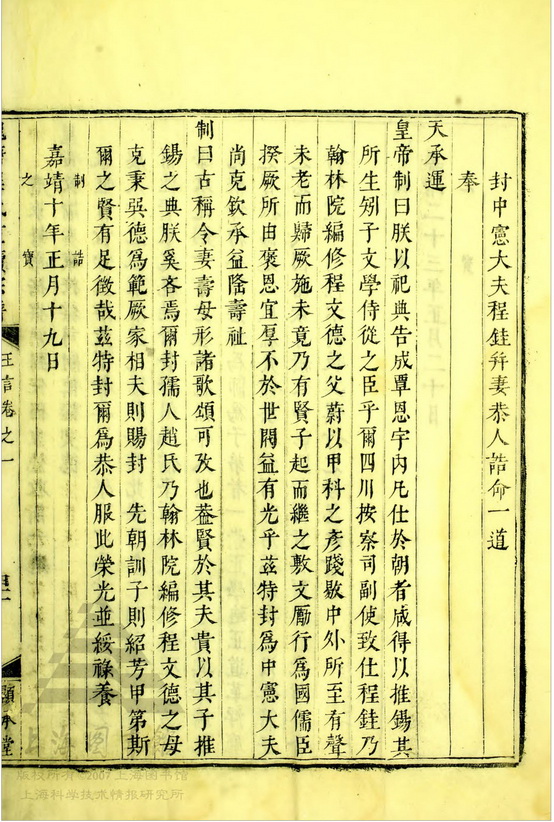 封中憲大夫程鈇并妻恭人誥命一道
奉
天承運
皇帝制曰朕以祀典告成覃恩宇内凡仕於朝者咸得以推錫其
所生矧子文學侍從之臣乎爾四川按察司副使致仕程鈇乃
翰林院編修程文德之父蔚以甲科之彦踐敭中外所至有聲
未老而歸厥施未竟乃有賢子起而繼之敷文勵行爲國儒臣
揆厥所由褒恩宜厚不於世閥益有光乎茲特封爲中憲大夫
尚克欽承益隆壽祉
制曰古稱令妻壽母形諸歌頌可攷也葢賢於其夫貴以其子推
錫之典朕奚吝焉爾封孺人趙氏乃翰林院編修程文德之母
克秉巽德爲範厥家相夫則賜封 先朝訓子則紹芳甲第斯
爾之賢有足徵哉茲特封爾爲恭人服此榮光並綏祿養
嘉靖十年正月十九日
制 誥
之 寶
王言卷之一
顯承堂
版權所有 2007 上海图书馆
上海科学技术情报研究所